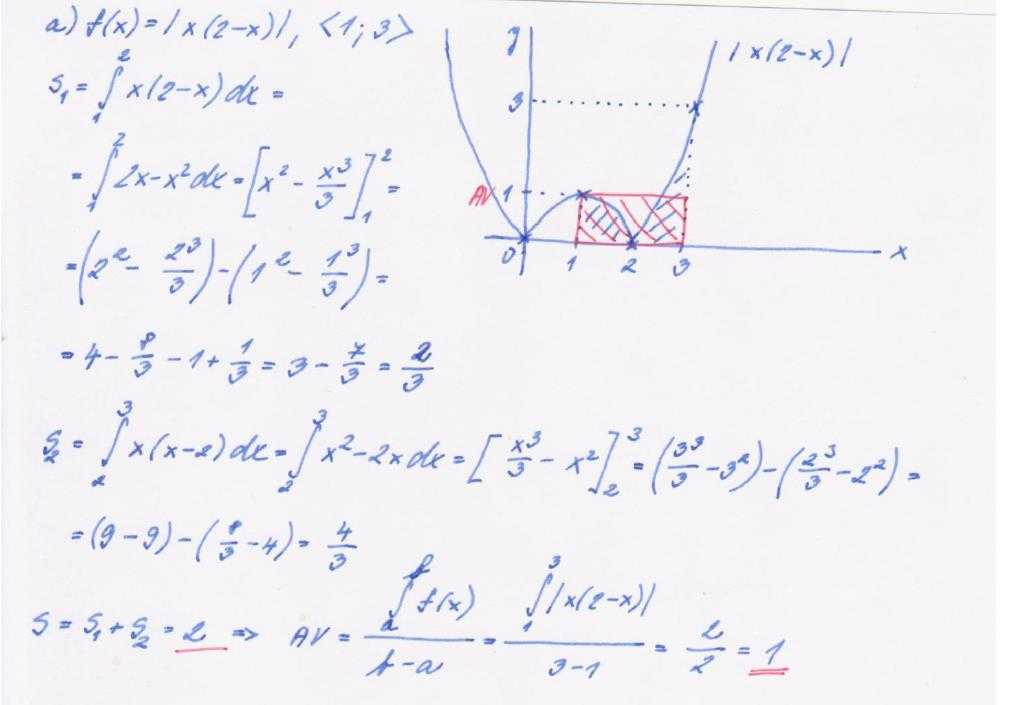 a) f(x) = |x(2-x)|, <1; 3>
S₁ = ∫₁² x(2-x) dx =
= ∫₁² 2x - x² dx = [x² - x³/3]₁² =
= (2² - 2³/3) - (1² - 1³/3) =
= 4 - 8/3 - 1 + 1/3 = 3 - 7/3 = 2/3
S₂ = ∫₂³ x(x-2) dx = ∫₂³ x² - 2x dx = [x³/3 - x²]₂³ = (3³/3 - 3²) - (2³/3 - 2²) =
= (9 - 9) - (8/3 - 4) = 4/3
S = S₁ + S₂ = 2 => AV = ∫ₐᵇ f(x) / b-a = ∫₁³ |x(2-x)| / 3-1 = 2/2 = 1
y
|x(2-x)|
3
AV 1
0 1 2 3 x